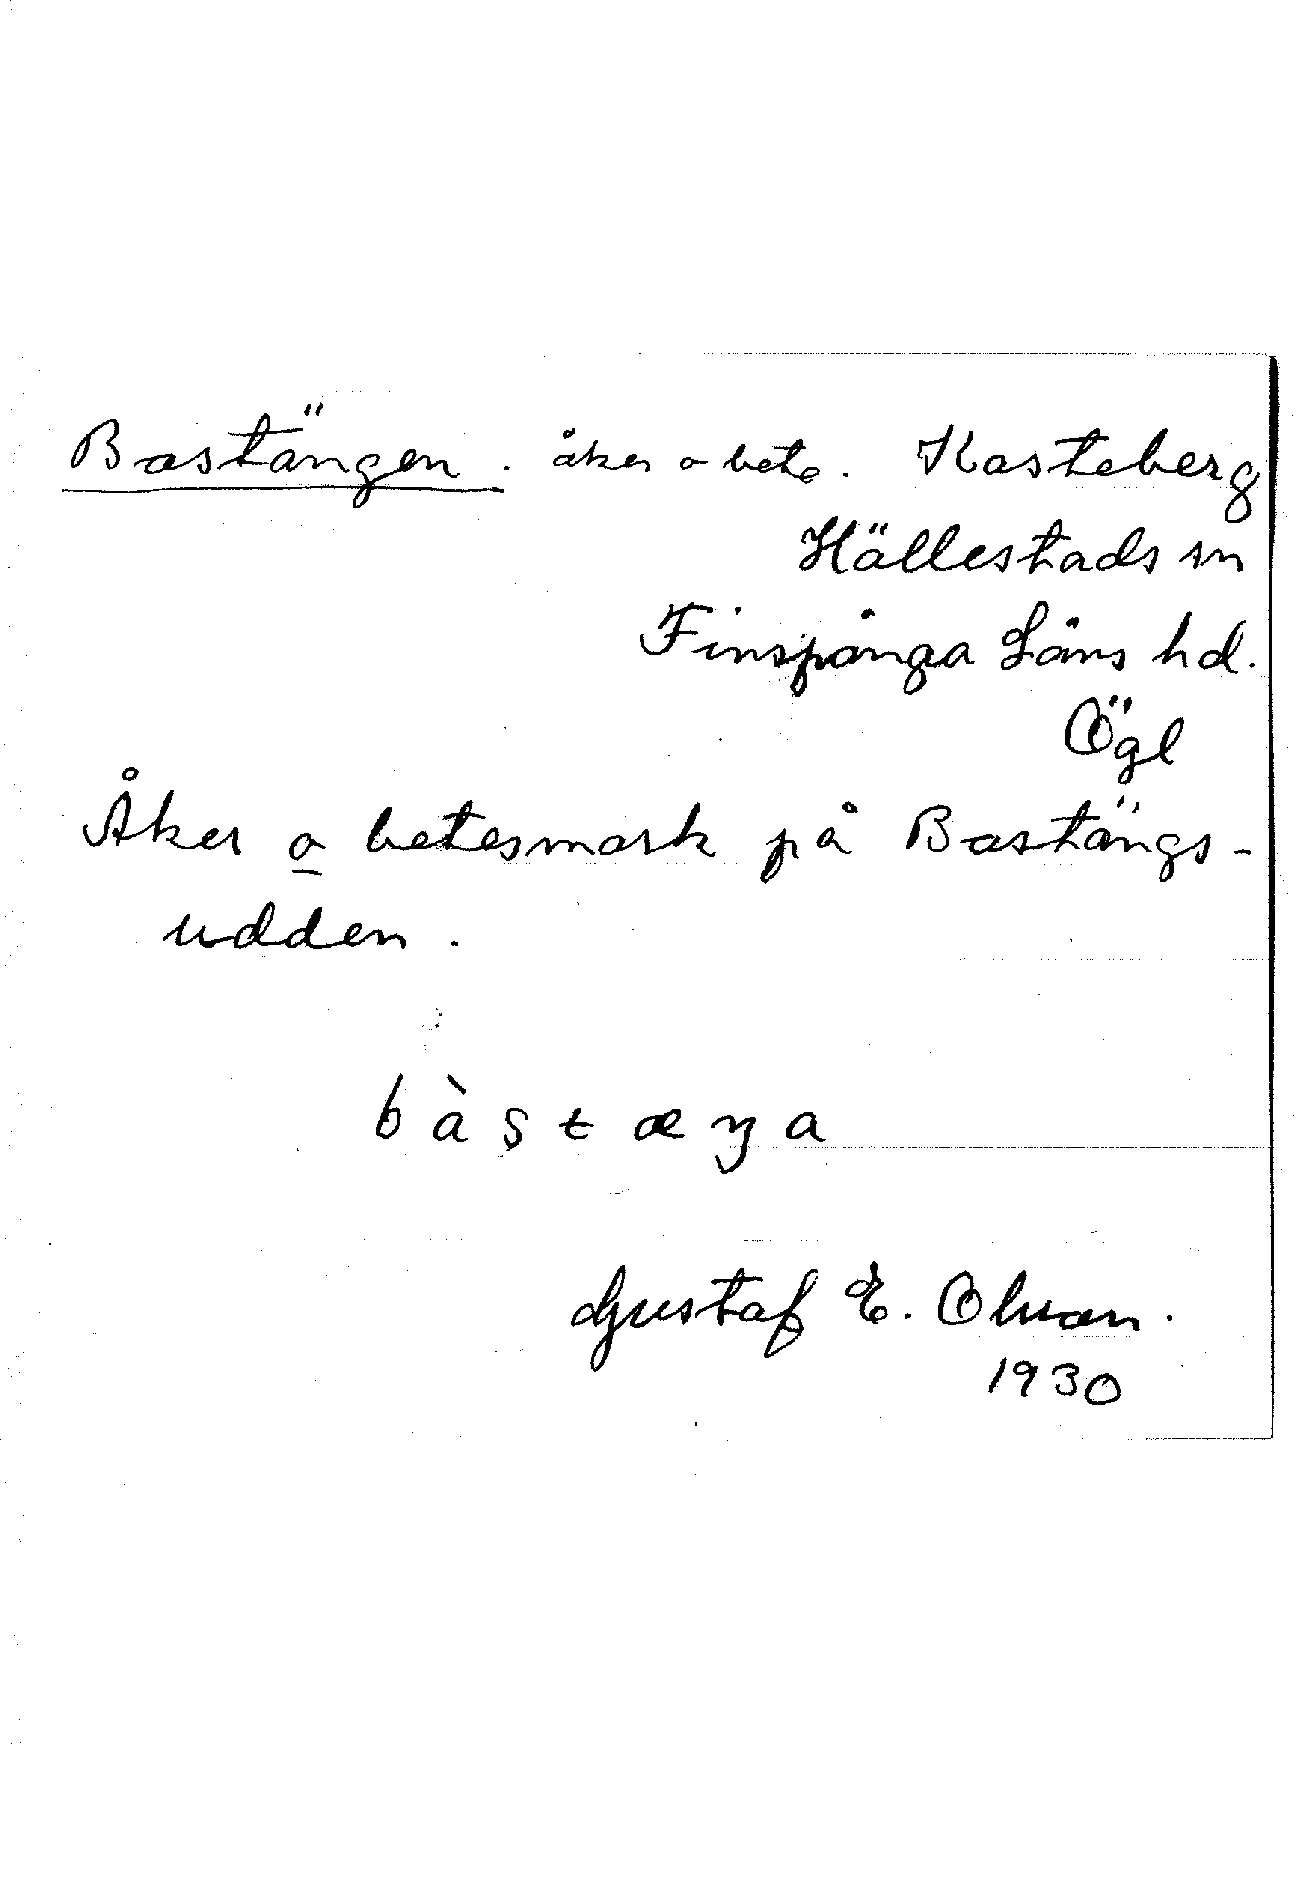 Bastängen. åker o bete. Kasteberg
Hällestads sn
Finspånga Läns hd.
Ögl
Åker o betesmark på Bastängs-
udden.
bàstæŋa
Gustaf E. Olson.
1930